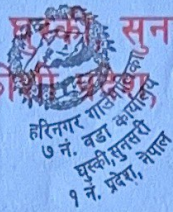 घुस्की, सुन
कोशी प्रदेश,
हरिनगर गाउँपालिका
७ नं. वडा कार्यालय
घुस्की,सुनसरी
१ नं. प्रदेश, नेपाल